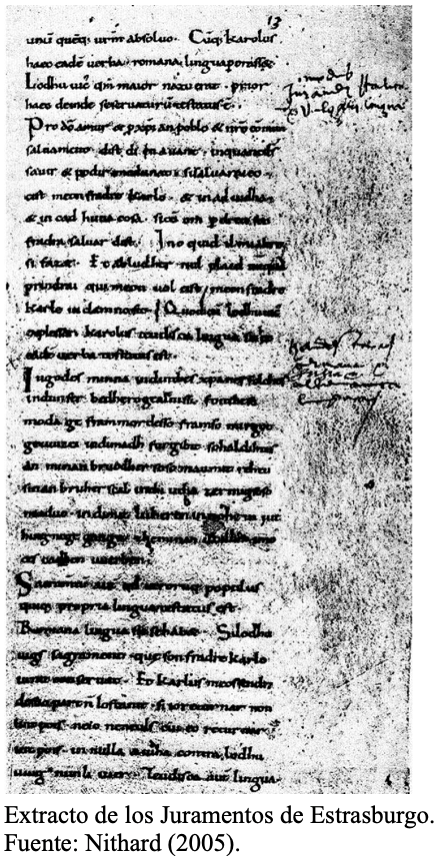 13
unū quēq; urm̄ absoluo. Cūq; karolus
haec eadē uerba romana lingua perorasset
Lodhuuic qm̄ maior natu erat. prior
haec deinde se seruaturū testatus ē.
Pro dō amur & p xpian poblo & nrō comun
saluament. dist di in auant. inquantds
sauir & podir medunat. si saluaraieo.
cist meon fradre karlo. & in adiudha
& in cad huna cosa. sicū om p dreit son
fradra saluar dist. Ino quid il mialtre
si faz&. Et abludher nul plaid nūquā
prindrai qui meon uol cist meon fradre
karle in damno sit. Quod cū lodhuuic
explesset. karolus teudisca lingua sic hec
eadē uerba testatus est.
In godes minna indinthes xpanes folches
indunser bedhero gealtnissi. fonthese
moda ge frammordesso. framso mirgot
geuuizci indimadh furgibit sohaldihtes
an minan bruodher soso manmit rehtu
sinan bruher scal inthi utha zermigsoso
maduo. indimit luheren in noheiniut
hing nege gango. zheminan uuillon imo
ces cadhen uuerhen.
Sacramentū autē qd utrorumq; populus
quiq; propria lingua testatus est.
Romana lingua sic se habet. Silodhu
uigs sagrament. que son fradre karlo
iurat conseruat. Et karlus meos sendra
desuo part n̄ lostanit. si io returnar non
lint pois. neio neneuls cui eo returnar
int pois. in nulla aiudha contra lodhu
uuig nun li iuer. Teudisca autē lingua.
Extracto de los Juramentos de Estrasburgo.
Fuente: Nithard (2005).